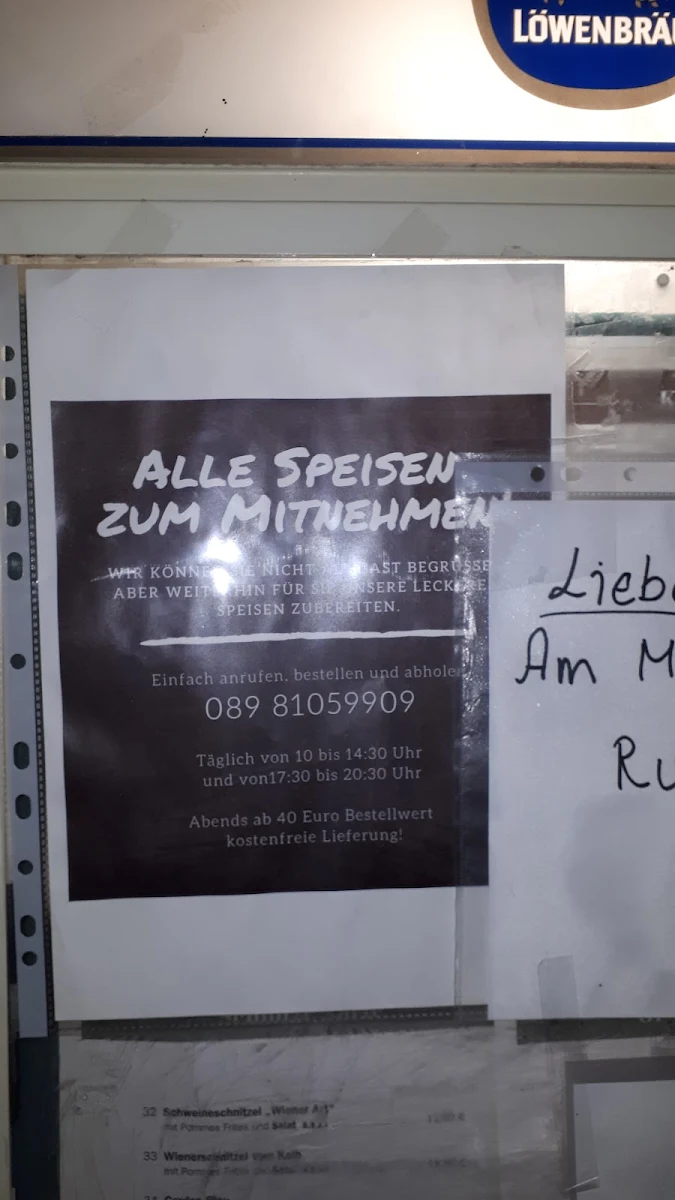 LÖWENBRÄU
ALLE SPEISEN
ZUM MITNEHMEN
WIR KÖNNEN SIE NICHT ALS GAST BEGRÜSSE
ABER WEITERHIN FÜR SIE UNSERE LECKERE
SPEISEN ZUBEREITEN.
Einfach anrufen, bestellen und abholen
089 81059909
Täglich von 10 bis 14:30 Uhr
und von17:30 bis 20:30 Uhr
Abends ab 40 Euro Bestellwert
kostenfreie Lieferung!
Liebe
Am M
Ru
32 Schweineschnitzel „Wiener Art"
mit Pommes Frites und Salat
33 Wienerschnitzel vom Kalb
mit Pommes Frites